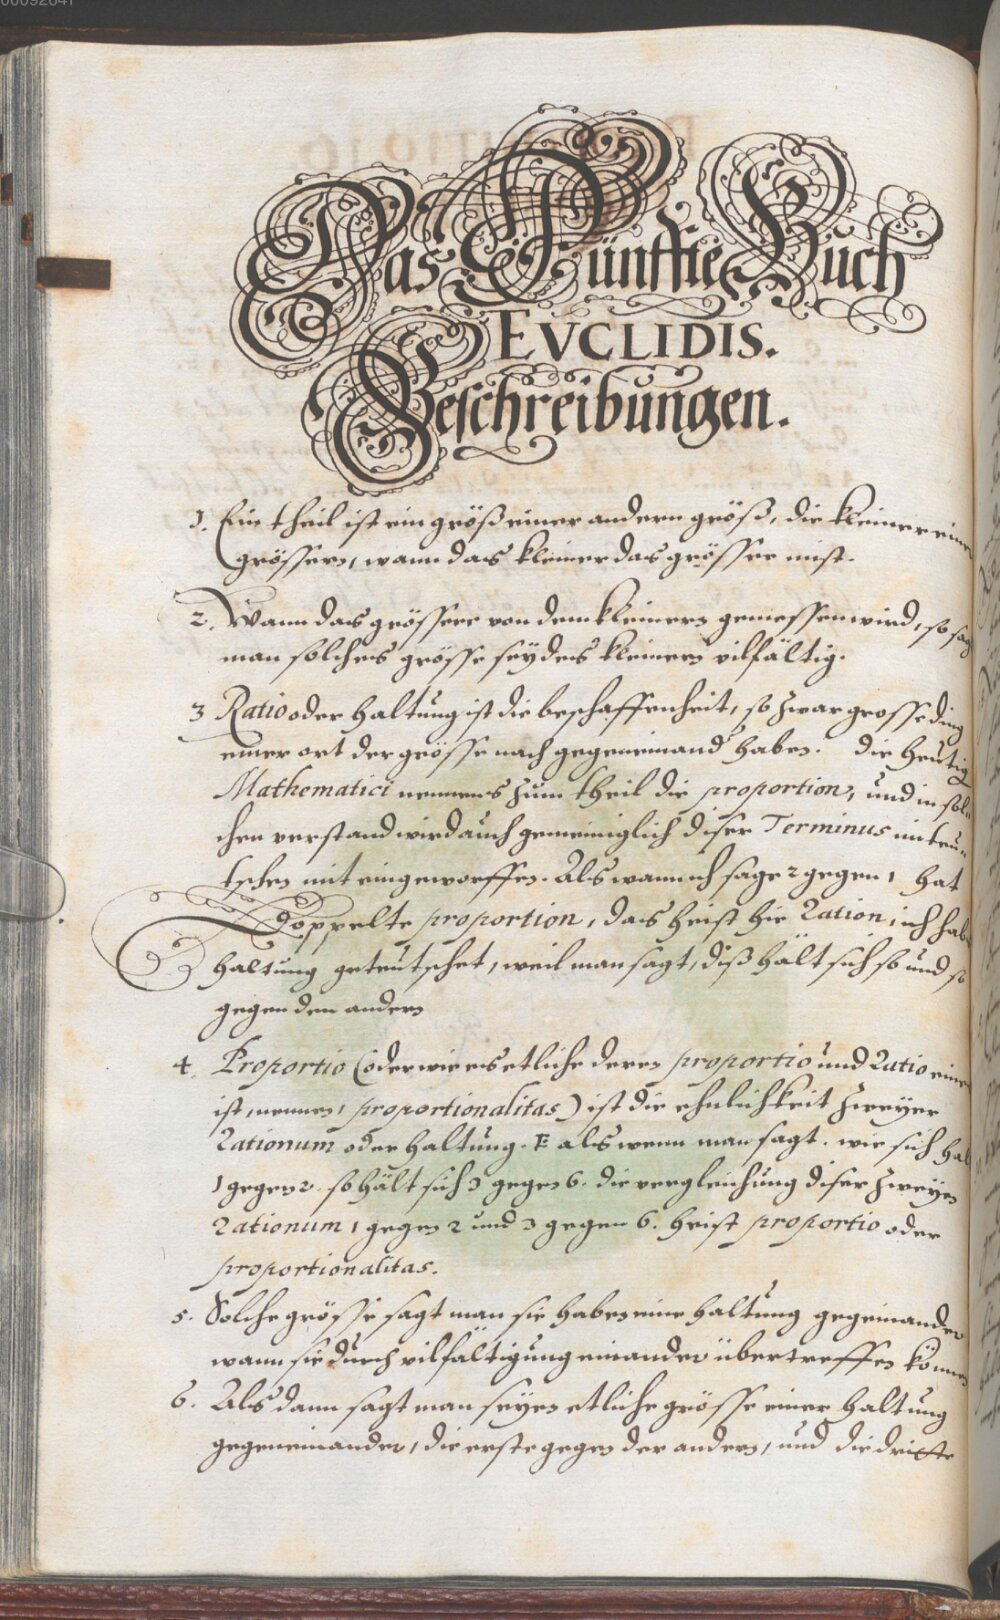 00092641
Das Fünffte Buch
EVCLIDIS.
Beschreibungen.
1. Ein theil ist ein größ einer andern größ, die kleiner einer
grössern, wann das kleiner das grösser mist.
2. Wann das grössere von dem kleinern gemessen wird, so sagt
man solches grösse seÿ des kleinern vilfältig.
3 Ratio oder haltung ist die beschaffenheit, so zwar grosse ding
einer ort der grösse nach gegeneinand haben. die heutig
Mathematici nennens zum theil die proportion, und in sol-
chen verstand wird auch gemeiniglich diser Terminus im teu-
tschen mit eingeworffen. Als wann ich sage 2 gegen 1 hat
doppelte proportion, das heist hie Ration, ich hab
haltung geteutschet, weil man sagt, diß hält sich so und so
gegen dem andern
4. Proportio (oder wie es etliche deren proportio und Ratio einer
ist, nennen, proportionalitas) ist die ehnlichkeit zweÿer
Rationum oder haltung. als wenn man sagt. wie sich hat
1 gegen 2. so hält sich 3 gegen 6. die vergleichung diser zweÿen
Rationum 1 gegen 2 und 3 gegen 6. heist proportio oder
proportionalitas.
5. Solche grösse sagt man sie haben eine haltung gegeinander
wann sie durch vilfältigung einander übertreffen können
6. Als dann sagt man seÿen etliche grösse einer haltung
gegeneinander, die erste gegen der andern, und die dritte